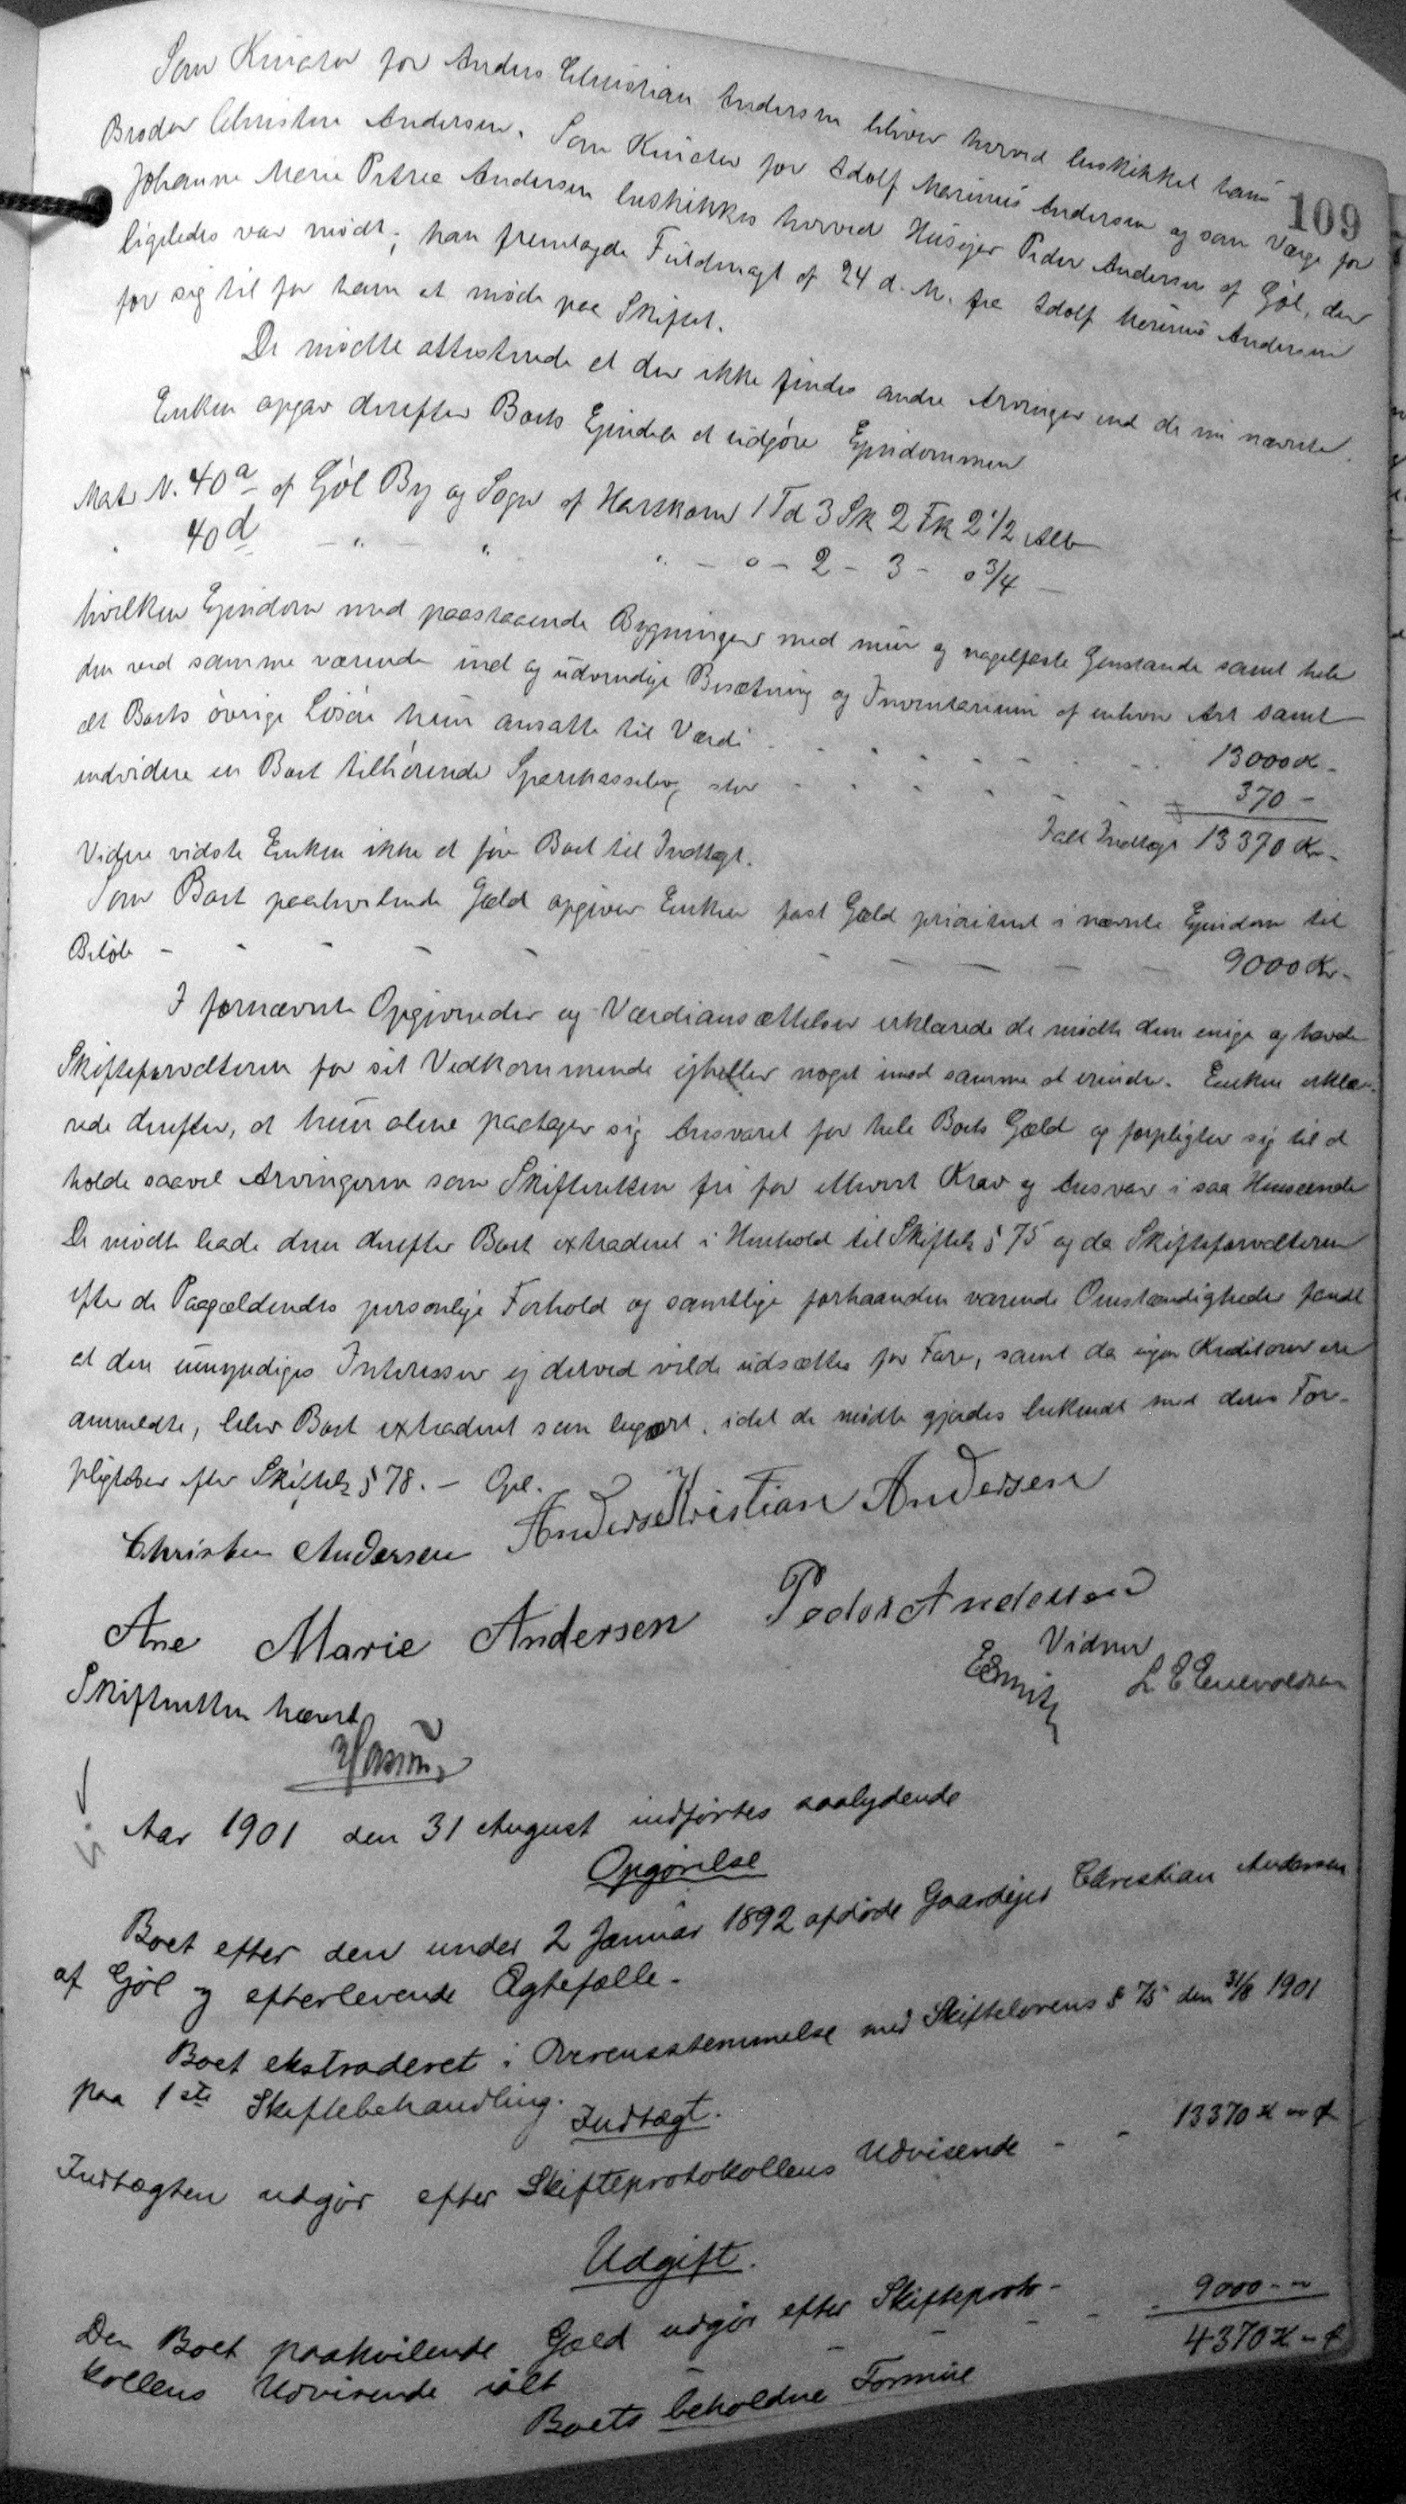 109
Som Kurator for Anders Christian Andersen bliver herved beskikket hans
Broder Christen Andersen. Som Kurator for Adolf Marinus Andersen og som Værge for
Johanne Marie Petrea Andersen beskikkes herved Husejer Peder Andersen af Gjøl, der
ligeledes var mødt; han fremlagde Fuldmagt af 24 d. M. fra Adolf Marinus Andersen
for sig til for ham at møde paa Skiftet.
De mødte attesterede at der ikke findes andre Arvinger end de nu nævnte.
Enken opgav derefter Boets Ejendele at udgøre Ejendommen
Matr N. 40a af Gjøl By og Sogn af Hartkorn 1 Td 3 Sk 2 Fk 2 1/2 Alb
" 40d - " - " " - 0 - 2 - 3 - 0 3/4 -
hvilken Ejendom med paastaaende Bygninger med mur og nagelfaste Genstande samt hele
den ved samme værende ind og udvendige Besætning og Inventarium af enhver Art samt
alt Boets øvrige Løsøre hun ansatte til Værdi - - - - - - 13000 K -
endvidere en Boet tilhørende Sparekassebog, stor - - - - - 370 -
Ialt Indtægt 13370 Kr -
Videre vidste Enken ikke at føre Boet til Indtægt.
Som Boet paahvilende Gæld opgiver Enken fast Gæld prioriteret i nævnte Ejendom til
Beløb - - - - - - - - - 9000 Kr -
I fornævnte Opgivender og Værdiansættelser erklærede de mødte dem enige og havde
Skifteforvalteren for sit Vedkommende ejheller noget imod samme at erindre. Enken erklæ-
rede derefter, at hun alene paatager sig Ansvaret for hele Boets Gæld og forpligter sig til at
holde saavel Arvingerne som Skifteretten fri for ethvert Krav og Ansvar i saa Henseende
De mødte bade dem derefter Boet extraderet i Henhold til Skiftel. § 75 og da Skifteforvalteren
efter de Paagældendes personlige Forhold og samtlige forhaanden værende Omstændigheder fandt
at den umyndiges Interesser ej derved vilde udsættes for Fare, samt da ingen Kreditorer ere
anmeldte, blev Boet extraderet som begært, idet de mødte gjordes bekendt med deres For-
pligtelser efter Skiftel. § 78. - Opl.
Christen Andersen Anders Kristian Andersen
Ane Marie Andersen Peder Andersen
Vidner
L E Enevoldsen
Skifteretten hævet
Aar 1901 den 31 August indførtes saalydende
Opgørelse
Boet efter den under 2 Januar 1892 afdøde Gaardejer Christian Andersen
af Gjøl og efterlevende Ægtefælle.
Boet ekstraderet i Overensstemmelse med Skiftelovens § 75 den 31/8 1901
paa 1ste Skiftebehandling.
Indtægt.
Indtægten udgjør efter Skifteprotokollens Udvisende - - 13370 K " Ø
Udgift.
Den Boet paahvilende Gæld udgjør efter Skifteproto-
kollens Udvisende ialt - - - - 9000 - "
Boets beholdne Formue 4370 K - Ø